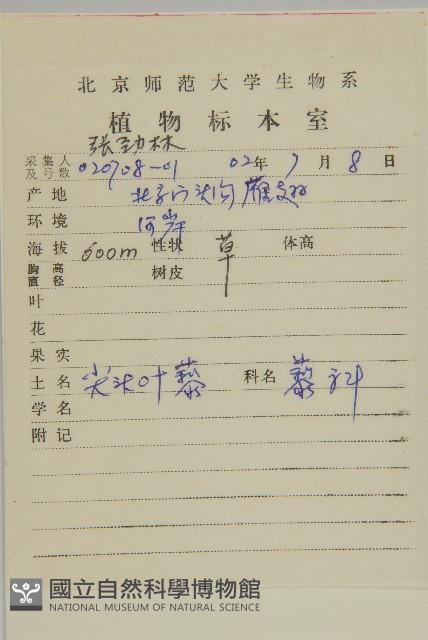 北京师范大学生物系
植物标本室
张劲林
采集人及号数 020708-01 02年7月8日
产地 北京门头沟雁翅
环境 河岸
海拔 600m 性状 草 体高
胸高直径 树皮
叶
花
果实
土名 尖头叶藜 科名 藜科
学名
附记
國立自然科學博物館
NATIONAL MUSEUM OF NATURAL SCIENCE